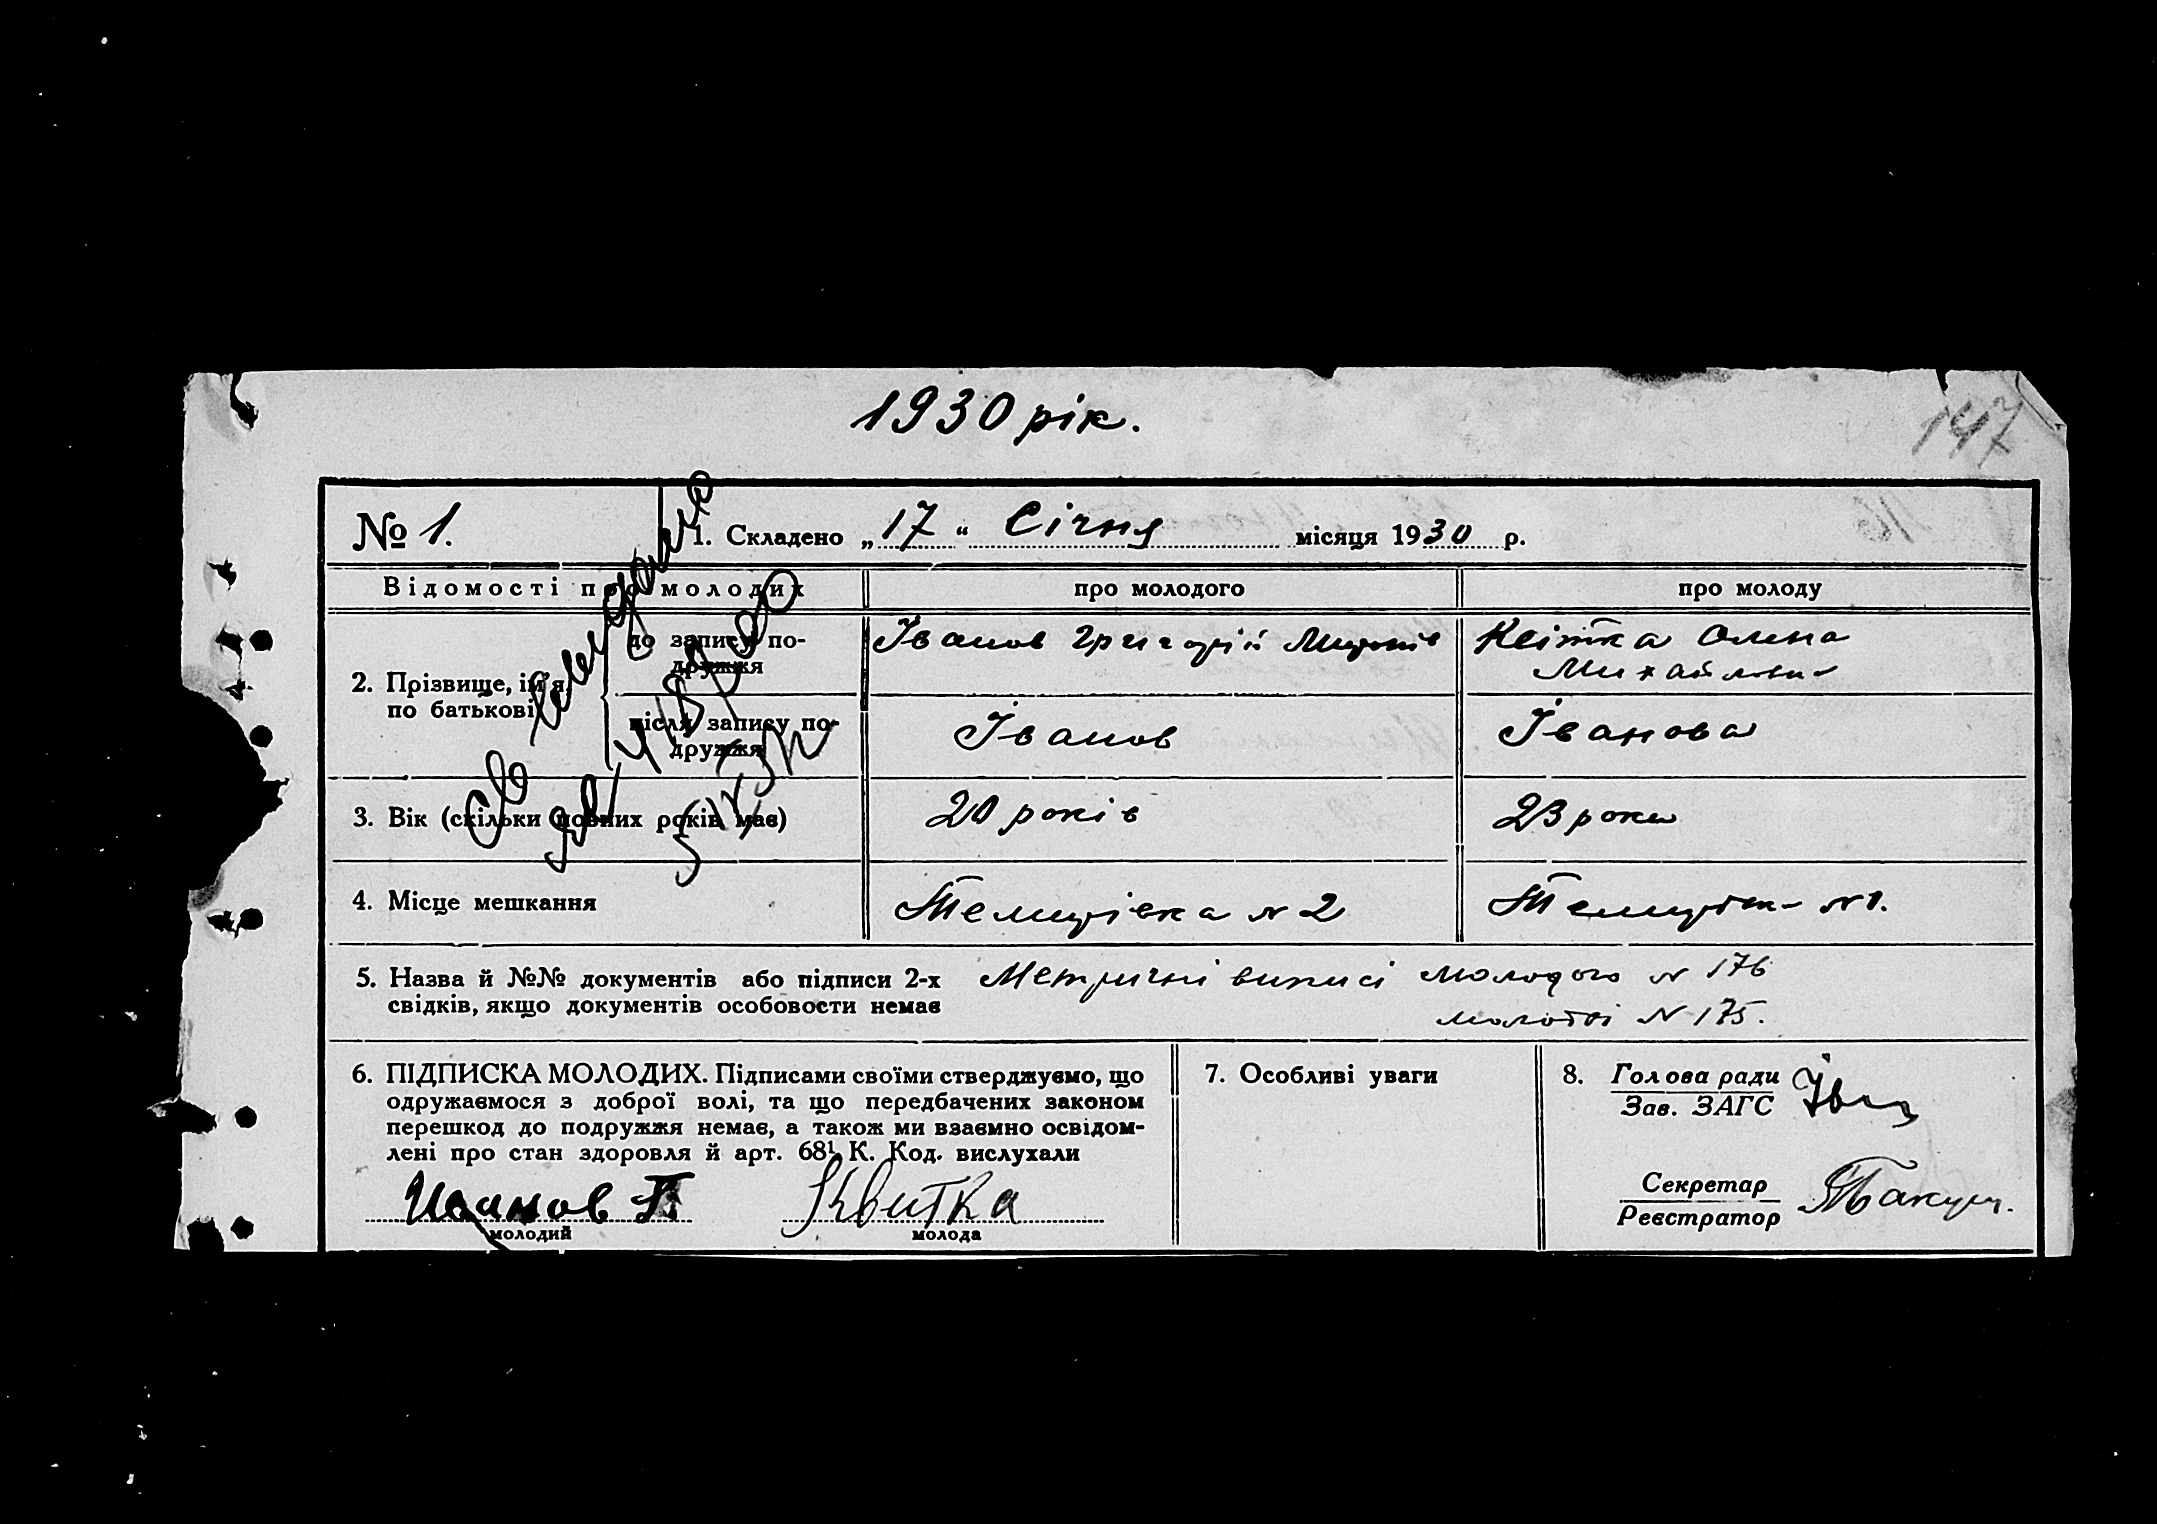 1930 рік.
147
№ 1.
1. Складено „17“ Січня місяця 1930 р.
Відомості про молодих
про молодого
про молоду
2. Прізвище, ім'я, по батькові
до запису по-
дружжя
Іванов Григорій
Квітка Олена
Михайлівна
після запису по-
дружжя
Іванов
Іванова
3. Вік (скільки повних років має)
20 років
23 роки
4. Місце мешкання
Темирівка № 2
Темирівка № 1.
5. Назва й №№ документів або підписи 2-х
свідків, якщо документів особовости немає
Метричні виписі молодого № 176
молодої № 175.
6. ПІДПИСКА МОЛОДИХ. Підписами своїми стверджуємо, що
одружаємося з доброї волі, та що передбачених законом
перешкод до подружжя немає, а також ми взаємно освідом-
лені про стан здоровля й арт. 68¹ К. Код. вислухали
Иванов Г.
молодий
Квитка
молода
7. Особливі уваги
8. Голова ради
Зав. ЗАГС
Секретар
Реєстратор